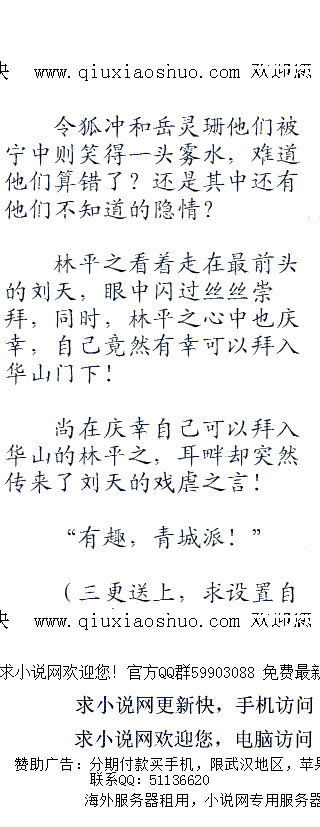 快 www.qiuxiaoshuo.com 欢迎您
令狐冲和岳灵珊他们被
宁中则笑得一头雾水，难道
他们算错了？还是其中还有
他们不知道的隐情？
林平之看着走在最前头
的刘天，眼中闪过丝丝崇
拜，同时，林平之心中也庆
幸，自己竟然有幸可以拜入
华山门下！
尚在庆幸自己可以拜入
华山的林平之，耳畔却突然
传来了刘天的戏虐之言！
“有趣，青城派！”
（三更送上，求设置自
快 www.qiuxiaoshuo.com 欢迎您
求小说网欢迎您！官方QQ群59903088 免费最新
求小说网更新快，手机访问
求小说网欢迎您，电脑访问
赞助广告：分期付款买手机，限武汉地区，苹果
联系QQ：51136620
海外服务器租用，小说网专用服务器